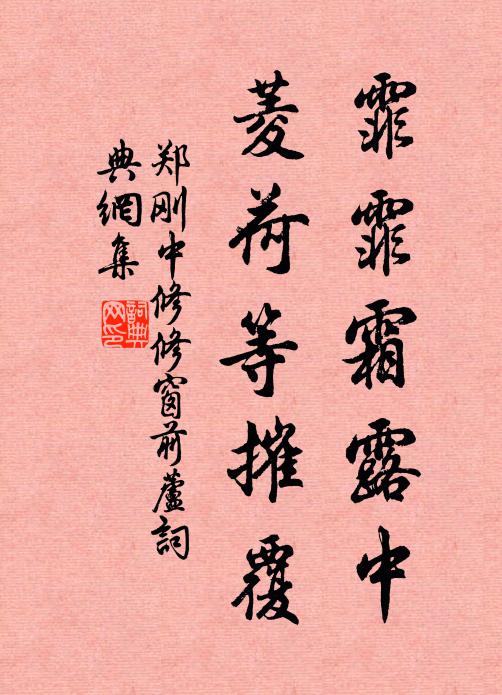 霏霏霜露中
菱荷等摧覆
郑刚中修修窗前蘆詞
典網集
詞典
网印